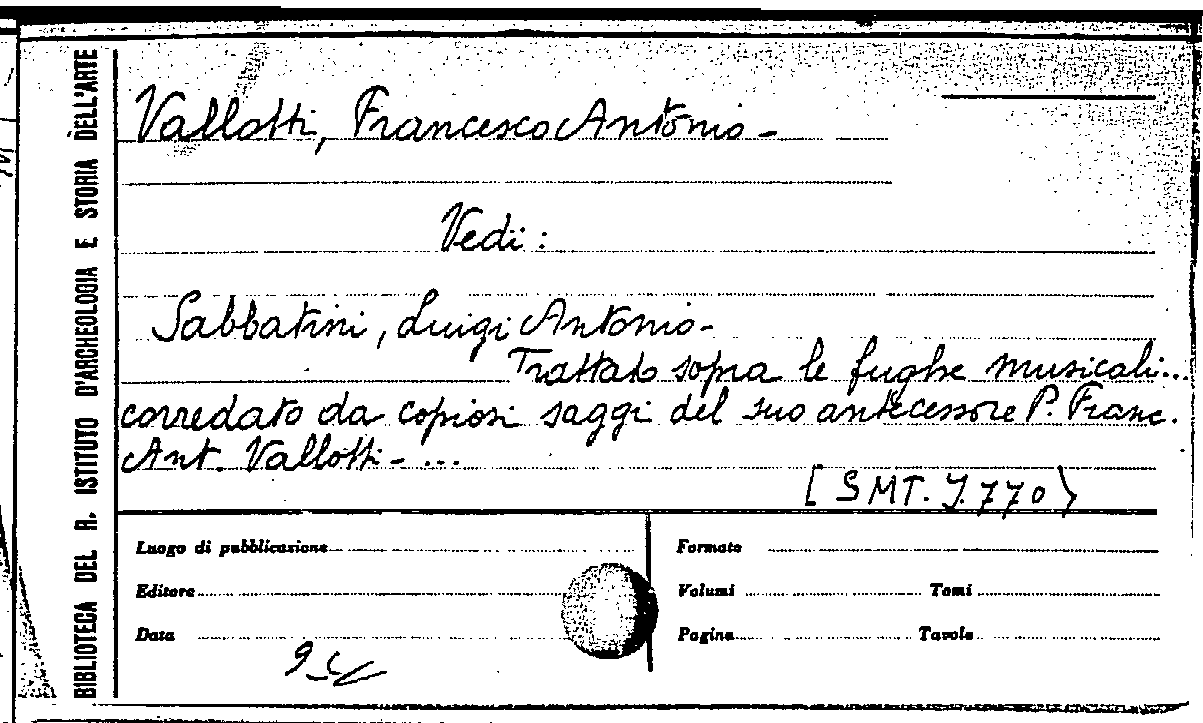 BIBLIOTECA DEL R. ISTITUTO D'ARCHEOLOGIA E STORIA DELL'ARTE
Vallotti, Francesco Antonio -
Vedi :
Sabbatini, Luigi Antonio -
Trattato sopra le fughe musicali...
corredato da copiosi saggi del suo antecessore P. Franc.
Ant. Vallotti - ...
[SMT. J. 770]
Luogo di pubblicazione
Formato
Editore
Volumi Tomi
Data
Pagine Tavole